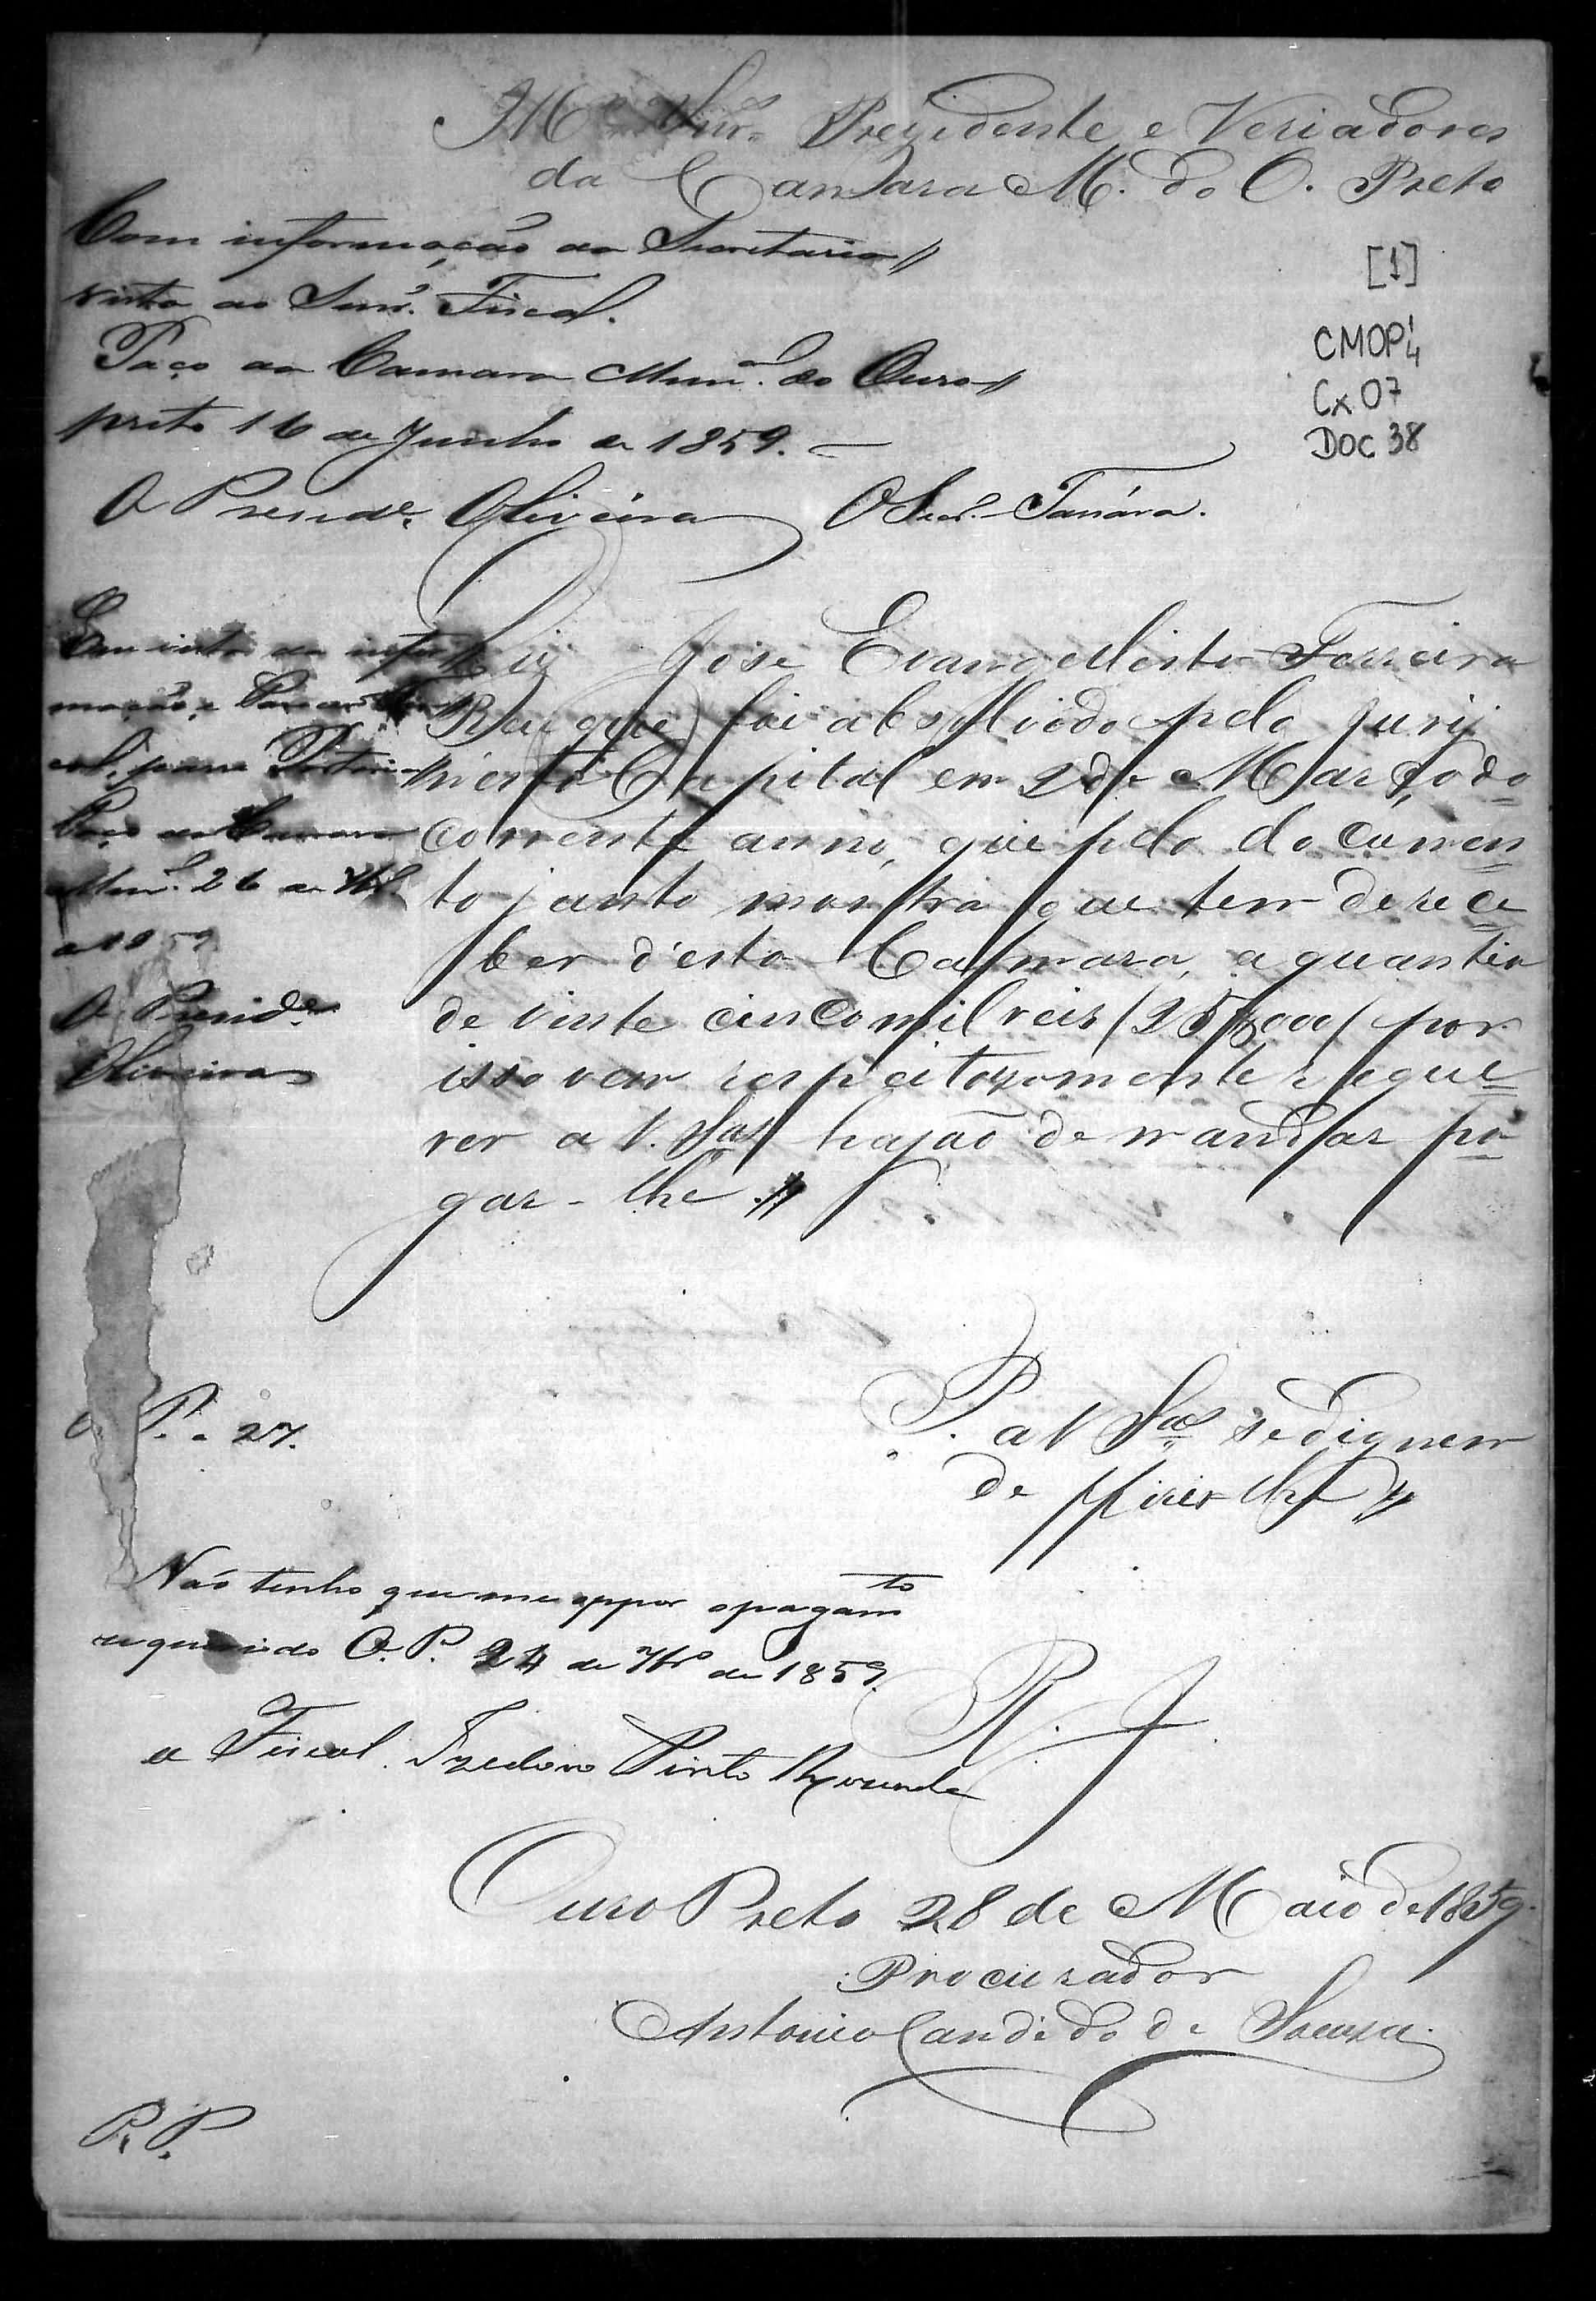 Ill.mos Snr.es Prezidente e Veriadores
da Camara M. do O. Preto
[1]
CMOP 1/4
Cx 07
DOC 38
Com informação do Secretario //
vista ao Snr. Fiscal.
Paço da Camara Mun.al do Ouro //
preto 16 de Junho de 1859. —
O Presid.e Oliveira O Secr.
Em vista da infor
mação, e Parecer Fis
cal, passe Portaria
Paço da Camara
Mun.al 26 de 7br.o
de 1859
O Presid.e
Oliveira
Diz Jose Evangelista Ferreira
Reu que foi absolviodo pelo Jurij
nesta Capital em 2 de Março do
corrente anno, que pelo documen
to junto mostra que tem de rece
ber d'esta Camara, a quantia
de vinte cinco mil reis (25$000) por
isso vem respeitozamente reque
rer a V. Sas hajão de mandar pa
gar-lhe.//
P. a V Sas se dignem
de ffirir lhe //
O. P. a 27.
Não tenho que me oppor o pagam.to
requerido O. P. 24 de 7br.o de 1859.
o Fiscal. Pinto
R. J
Ouro Preto 28 de Maio de 1859.
Procurador
Antonio Candido de Souza.
P. P.